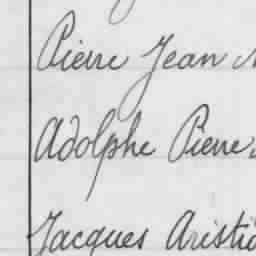 Pierre Jean
Adolphe Pierre
Jacques Aristi